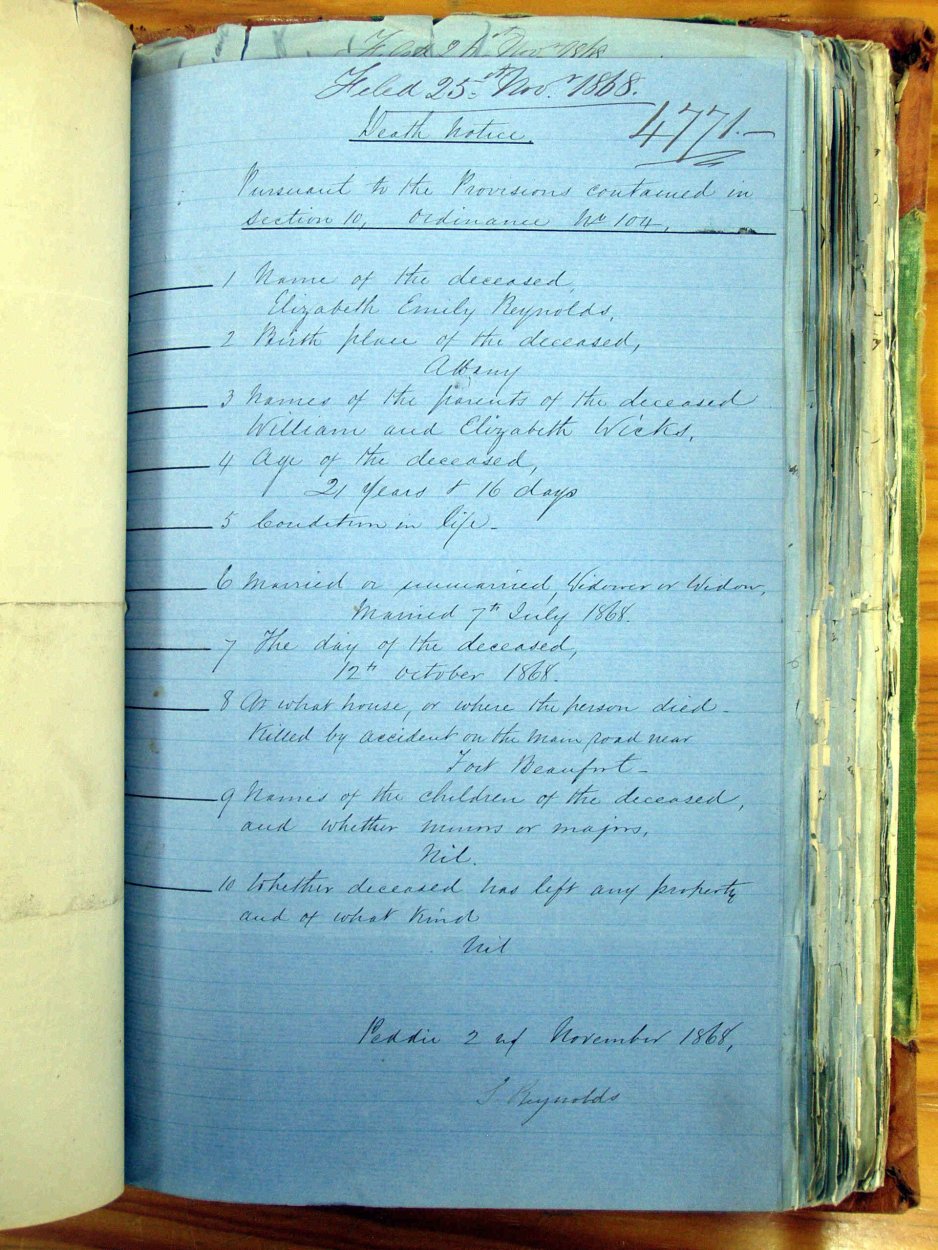 Filed 24th Novr 1868
Filed 25th Novr. 1868.
4771.-
Death Notice.
Pursuant to the Provisions contained in
section 10, Ordinance No 104,
1 Name of the deceased,
Elizabeth Emily Reynolds,
2 Birth place of the deceased,
Albany
3 Names of the parents of the deceased
William and Elizabeth Wicks,
4 Age of the deceased,
21 Years & 16 days
5 Condition in life-
6 Married or unmarried, Widower or Widow,
Married 7th July 1868.
7 The day of the deceased,
12th October 1868.
8 At what house, or where the person died-
Killed by accident on the main road near
Fort Beaufort-
9 Names of the children of the deceased,
and whether minors or majors,
Nil.
10 Whether deceased has left any property
and of what kind
Nil
Peddie 2nd November 1868,
Reynolds